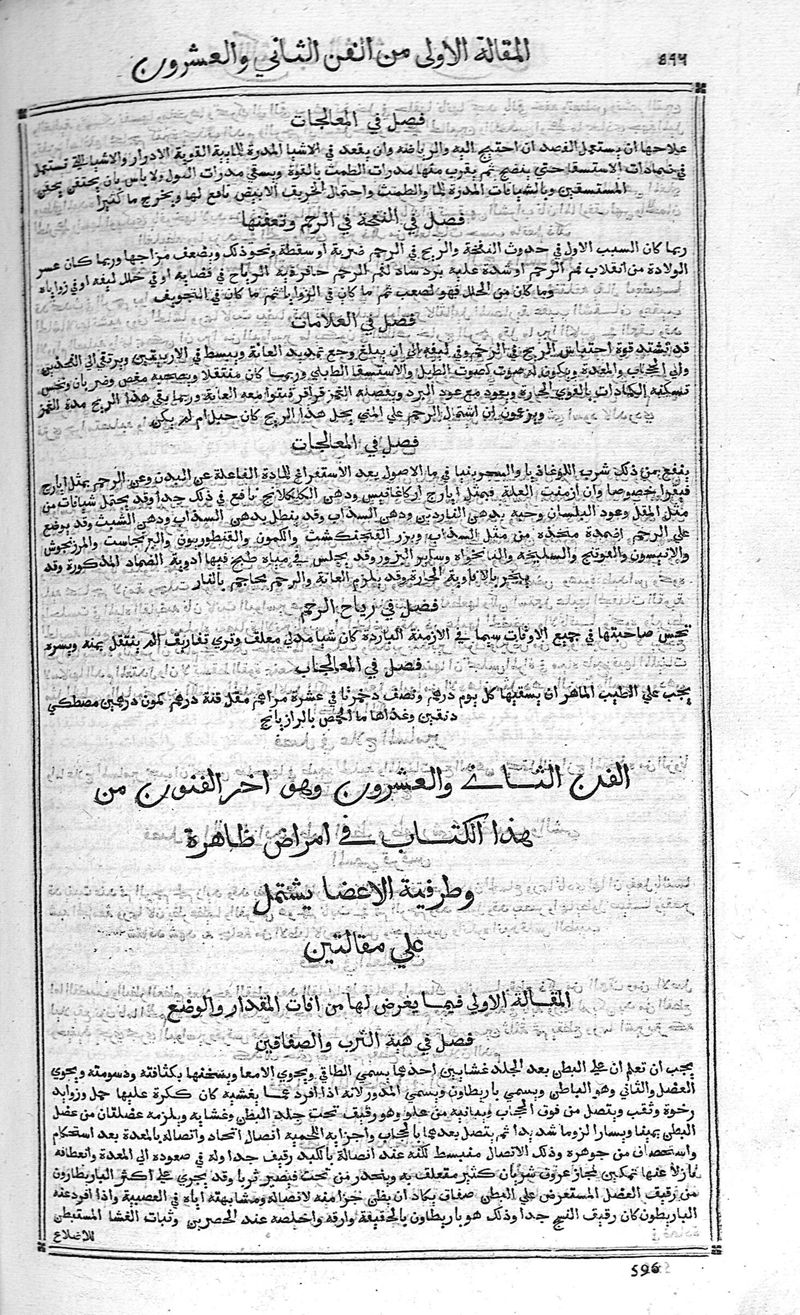 ٥٩٦ المقالة الاولى من الفن الثاني والعشرون
فصل في المعالجات
علاجها ان يستعمل الفصد ان احتيج اليه والرياضه وان يقعد في الاشيا المدرة للمايية القوية الادرار والاشيا التي تستعمل
في ضمادات الاستسقا حتي ينضج ثم يقرب منها مدرات الطمث بالقوة ويسقي مدرات البول ولا باس بان يحتقن بحقن
المستسقين وبالشيافات المدرة للما والطمث واحتمال الخريف الابيض نافع لها ويخرج ما كثيرا
فصل في النفخة في الرحم وتعفنها
ربما كان السبب الاول في حدوث النفخة والريح في الرحم ضربة او سقطة ونحو ذلك ويضعف مزاجها وربما كان عسر
الولادة من انقلاب فم الرحم او شدة علبه برد ساد لفم الرحم حاقن به الرياح في فضايه او في خلل ليفه او في زواياه
وما كان من الخلل فهو اصعب ثم ما كان في الزوايا ثم ما كان في التجويف
فصل في العلامات
قد تشتد قوة احتباس الريح في الرحم وفي ليفه الى ان يبلغ وجع تمديد العانة ويبسط في الاربيتين ويرتقي الى الفخذين
والى الحجاب والمعدة ويكون له صوت كصوت الطبل والاستسقا الطبلي وربما كان منتقلا ويصحبه مغص وضربان ونخس
تسكنه الكمادات بالقوي الحارة ويعود مع عود البرد ويفصله الغمز قراقر فينوا معه العانة وربما بقي هذا الريح مدة العمر
ويزعمون ان اشتمال الرحم علي المني يحل هذا الريح كان حبل ام لم يكن
فصل في المعالجات
ينفع من ذلك شرب اللوغاذيا والسجرينيا في ما الاصول بعد الاستفراغ للمادة الفاعلة عن البدن وعن الرحم بمثل ايارج
فيقرا خصوصا وان ازمنت العلة فبمثل ايارج اركاغانيس ودهن الكلكلانج نافع في ذلك جدا وقد يحتمل شيافات من
مثل المقل وعود البلسان وحبه بدهن الناردين ودهن السذاب وقد ينطل بدهن السذاب ودهن الشبت وقد يوضع
علي الرحم اضمدة متخذه من مثل السذاب وبزر الفنجنكشت والكمون والقنطوريون والبرنجاسف والمرزنجوش
والانيسون والفوتنج والسليخة والنانخواه وساير البزور وقد يجلس في مياه طبخ فيها ادوية الضماد المذكورة وقد
يبخر بالافاوية الحارة وقد يلزم العانة والرحم محاجم بالنار
فصل في رياح الرحم
تحس صاحبتها في جميع الاوقات سيما في الازمنة الباردة كان شيا مدلي معلف وتري تفاريف الم ينتقل يمنه ويسره
فصل في المعالجات
يجب علي الطبيب الماهر ان يسقيها كل يوم درهم ونصف دخمرثا في عشرة مراهم مقل قنة درهم كمون درهمين مصطكي
دنقين وغذاها ما الحمص بالرازيانج
الفن الثاني والعشرون وهو اخر الفنون من
هذا الكتاب في امراض ظاهرة
وطرفية الاعضا يشتمل
علي مقالتين
المقالة الاولي فيما يعرض لها من افات المقدار والوضع
فصل في هية الثرب والصفاقين
يجب ان تعلم ان علي البطن بعد الجلد غشايين احدهما يسمي الطافي ويحوي الامعا ويسخفها بكثافته ودسومته ويحوي
العضل والثاني وهو الباطن ويسمي باريطاون ويسمي المدور لانه اذا افرد عما يغشيه كان ككرة عليها حمل وزوايد
رخوة وثقب ويتصل من فوق الحجاب ويباينه من علو وهو رقيف تحت جلد البطن وغشايه ويلزمه عضلتان من عضل
البطن يمينا ويسارا لزوما شديدا ثم يتصل بعدها بالحجاب واجزايه اللحميه اتصال اتحاد واتصاله بالمعدة بعد استحكام
واستحصاف من جوهره وذلك الاتصال منبسط لكنه عند اتصالة بالكبد رقيف جدا وله في صعوده الى المعدة وانعطافه
نازلا عنها تمكين لمجاز عروق شريان كثير متعلف به وينحدر من تحت فيصير ثربا وقد يجري علي اكثر الباريطارون
من رقيف العضل المستعرض علي البطن صفاق يكاد ان يظن جزا منه لاتصاله ومشابهته اياه في العصبية واذا افرد عنه
الباريطون كان رقيف النسج جدا وذلك هو باريطاون بالحقيقة وارقه واخلصه عند الخصرين وثبات الغشا المستبطن
للاضلاع
596